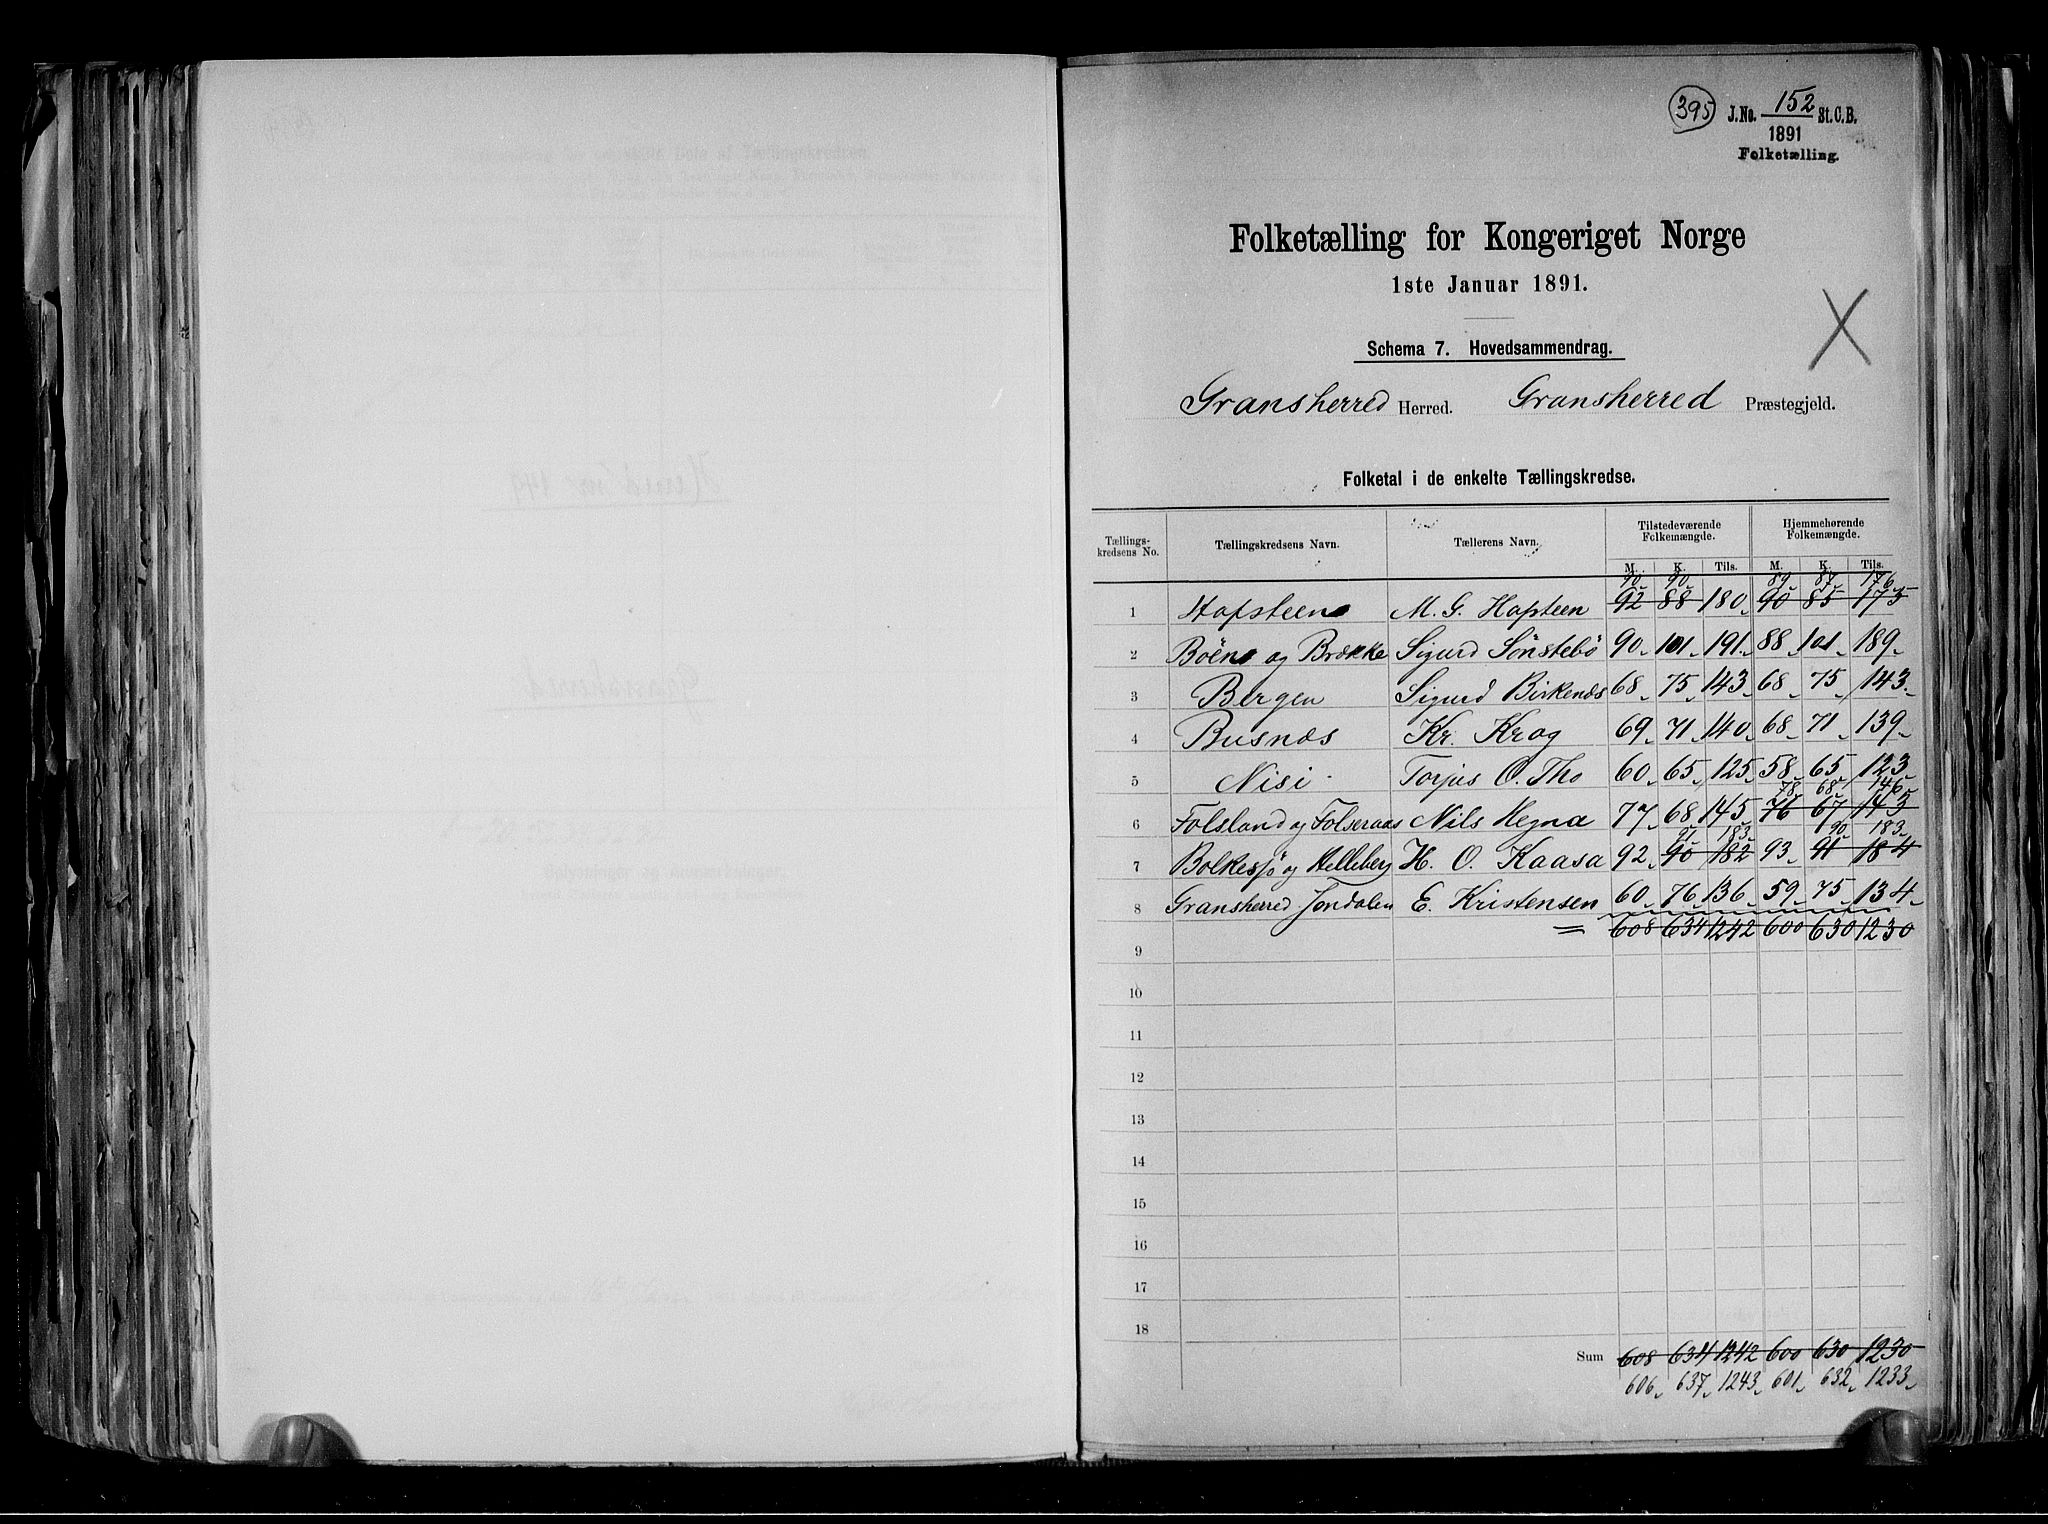 395 J.No. 152 St.C.B.
1891
Folketælling.
Folketælling for Kongeriget Norge
1ste Januar 1891.
Schema 7. Hovedsammendrag.
Gransherred Herred. Gransherred Præstegjeld.
Folketal i de enkelte Tællingskredse.
Tællings-kredsens No. Tællingskredsens Navn. Tællerens Navn. Tilstedeværende Folkemængde. Hjemmehørende Folkemængde.
M. K. Tils. M. K. Tils.
90 90 89 87 176
1 Hofsteen M. G. Hofsteen 92 88 180 90 85 175
2 Böen og Brække Sigurd Sönstebö 90 101 191 88 101 189
3 Bergen Sigurd Birkenæs 68 75 143 68 75 143
4 Busnæs Kr. Krog 69 71 140 68 71 139
5 Nisi Torjus O. Tho 60 65 125 58 65 123
78 68 146
6 Folsland og Folseraas Nils Hegna 77 68 145 76 67 143
91 183 90 183
7 Bolkesjö og Helleberg H. O. Kaasa 92 90 182 93 91 184
8 Gransherred Jondalen E. Kristensen 60 76 136 59 75 134
= 608 634 1242 600 630 1230
9
10
11
12
13
14
15
16
17
18
Sum 608 634 1242 600 630 1230
606 637 1243 601 632 1233